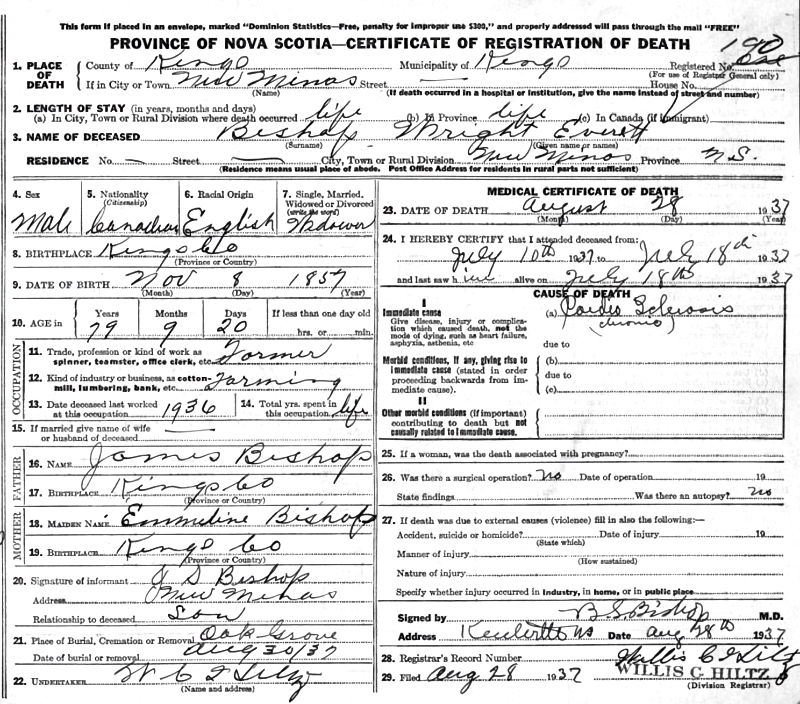 This form if placed in an envelope, marked "Dominion Statistics—Free, penalty for improper use $300," and properly addressed will pass through the mail "FREE"
PROVINCE OF NOVA SCOTIA—CERTIFICATE OF REGISTRATION OF DEATH
190
1. PLACE OF DEATH
County of Kings Municipality of Kings Registered No.
(For use of Registrar General only)
If in City or Town New Minas Street — House No.
(Name) (If death occurred in a hospital or institution, give the name instead of street and number)
2. LENGTH OF STAY (in years, months and days)
(a) In City, Town or Rural Division where death occurred life (b) In Province life (c) In Canada (if immigrant)
3. NAME OF DECEASED Bishop Wright Everett
(Surname) (Given name or names)
RESIDENCE No. — Street — City, Town or Rural Division New Minas Province N.S.
(Residence means usual place of abode. Post Office Address for residents in rural parts not sufficient)
4. Sex 5. Nationality (Citizenship) 6. Racial Origin 7. Single, Married, Widowed or Divorced (write the word)
Male Canadian English Widower
8. BIRTHPLACE Kings Co
(Province or Country)
9. DATE OF BIRTH Nov 8 1857
(Month) (Day) (Year)
10. AGE in Years Months Days If less than one day old
79 9 20 hrs. or min.
OCCUPATION
11. Trade, profession or kind of work as spinner, teamster, office clerk, etc. Farmer
12. Kind of industry or business, as cotton-mill, lumbering, bank, etc. Farming
13. Date deceased last worked at this occupation 1936 14. Total yrs. spent in this occupation life
15. If married give name of wife or husband of deceased —
FATHER
16. NAME James Bishop
17. BIRTHPLACE Kings Co
(Province or Country)
MOTHER
18. MAIDEN NAME Emmeline Bishop
19. BIRTHPLACE Kings Co
(Province or Country)
20. Signature of informant Bishop
Address New Minas
Relationship to deceased Son
21. Place of Burial, Cremation or Removal Oak Grove
Date of burial or removal Aug 30/37
22. UNDERTAKER W C Hiltz
(Name and address)
MEDICAL CERTIFICATE OF DEATH
23. DATE OF DEATH August 28 1937
(Month) (Day) (Year)
24. I HEREBY CERTIFY that I attended deceased from:
July 10th 1937 to July 18th
and last saw him alive on July 18th 1937
CAUSE OF DEATH
I
Immediate cause
Give disease, injury or complication which caused death, not the mode of dying, such as heart failure, asphyxia, asthenia, etc
(a) Cardio Sclerosis
(chronic)
due to
Morbid conditions, if any, giving rise to immediate cause (stated in order proceeding backwards from immediate cause).
(b)
due to
(c)
II
Other morbid conditions (if important) contributing to death but not causally related to immediate cause.
25. If a woman, was the death associated with pregnancy?
26. Was there a surgical operation? no Date of operation 19
State findings Was there an autopsy? no
27. If death was due to external causes (violence) fill in also the following:—
Accident, suicide or homicide? Date of injury 19
(State which)
Manner of injury
(How sustained)
Nature of injury
Specify whether injury occurred in industry, in home, or in public place
Signed by B. S. Bishop M.D.
Address Kentville NS Date Aug 28th 1937
28. Registrar's Record Number
Willis C Hiltz
29. Filed Aug 28 1937 WILLIS C. HILTZ
(Division Registrar)